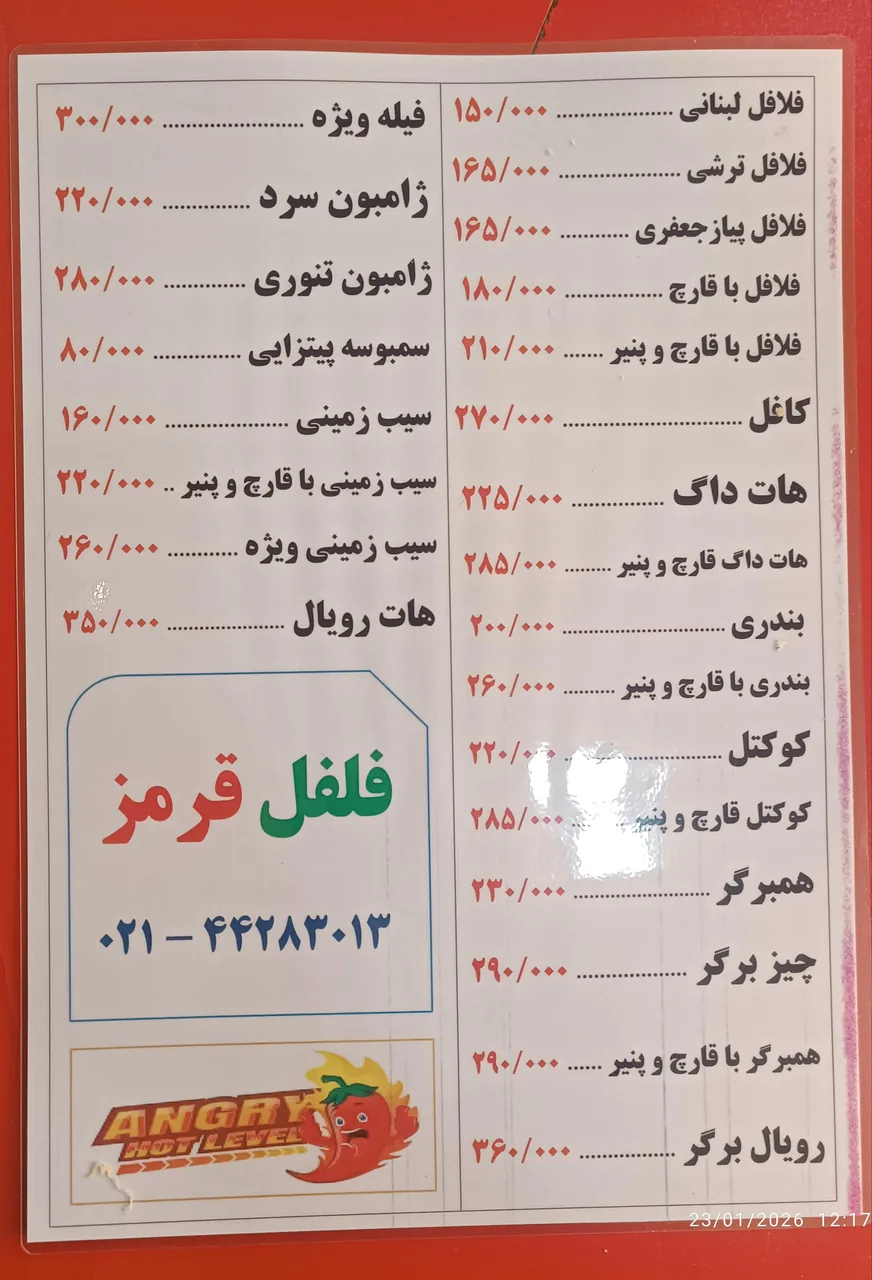 فلافل لبنانی .................... ۱۵۰/۰۰۰
فلافل ترشی ..................... ۱۶۵/۰۰۰
فلافل پیازجعفری ............ ۱۶۵/۰۰۰
فلافل با قارچ ................. ۱۸۰/۰۰۰
فلافل با قارچ و پنیر ....... ۲۱۰/۰۰۰
کافل ............................... ۲۷۰/۰۰۰
هات داگ ................ ۲۲۵/۰۰۰
هات داگ قارچ و پنیر ......... ۲۸۵/۰۰۰
بندری ............................ ۲۰۰/۰۰۰
بندری با قارچ و پنیر .......... ۲۶۰/۰۰۰
کوکتل ........................... ۲۲۰/۰۰۰
کوکتل قارچ و پنیر ......... ۲۸۵/۰۰۰
همبرگر ........................ ۲۳۰/۰۰۰
چیز برگر ................... ۲۹۰/۰۰۰
همبرگر با قارچ و پنیر ...... ۲۹۰/۰۰۰
رویال برگر ................. ۳۶۰/۰۰۰
فیله ویژه ........................ ۳۰۰/۰۰۰
ژامبون سرد ............... ۲۲۰/۰۰۰
ژامبون تنوری .............. ۲۸۰/۰۰۰
سمبوسه پیتزایی ............... ۸۰/۰۰۰
سیب زمینی ..................... ۱۶۰/۰۰۰
سیب زمینی با قارچ و پنیر .. ۲۲۰/۰۰۰
سیب زمینی ویژه ............ ۲۶۰/۰۰۰
هات رویال .................... ۳۵۰/۰۰۰
فلفل قرمز
۰۲۱ – ۴۴۲۸۳۰۱۳
ANGRY
HOT LEVEL
23/01/2026 12:17